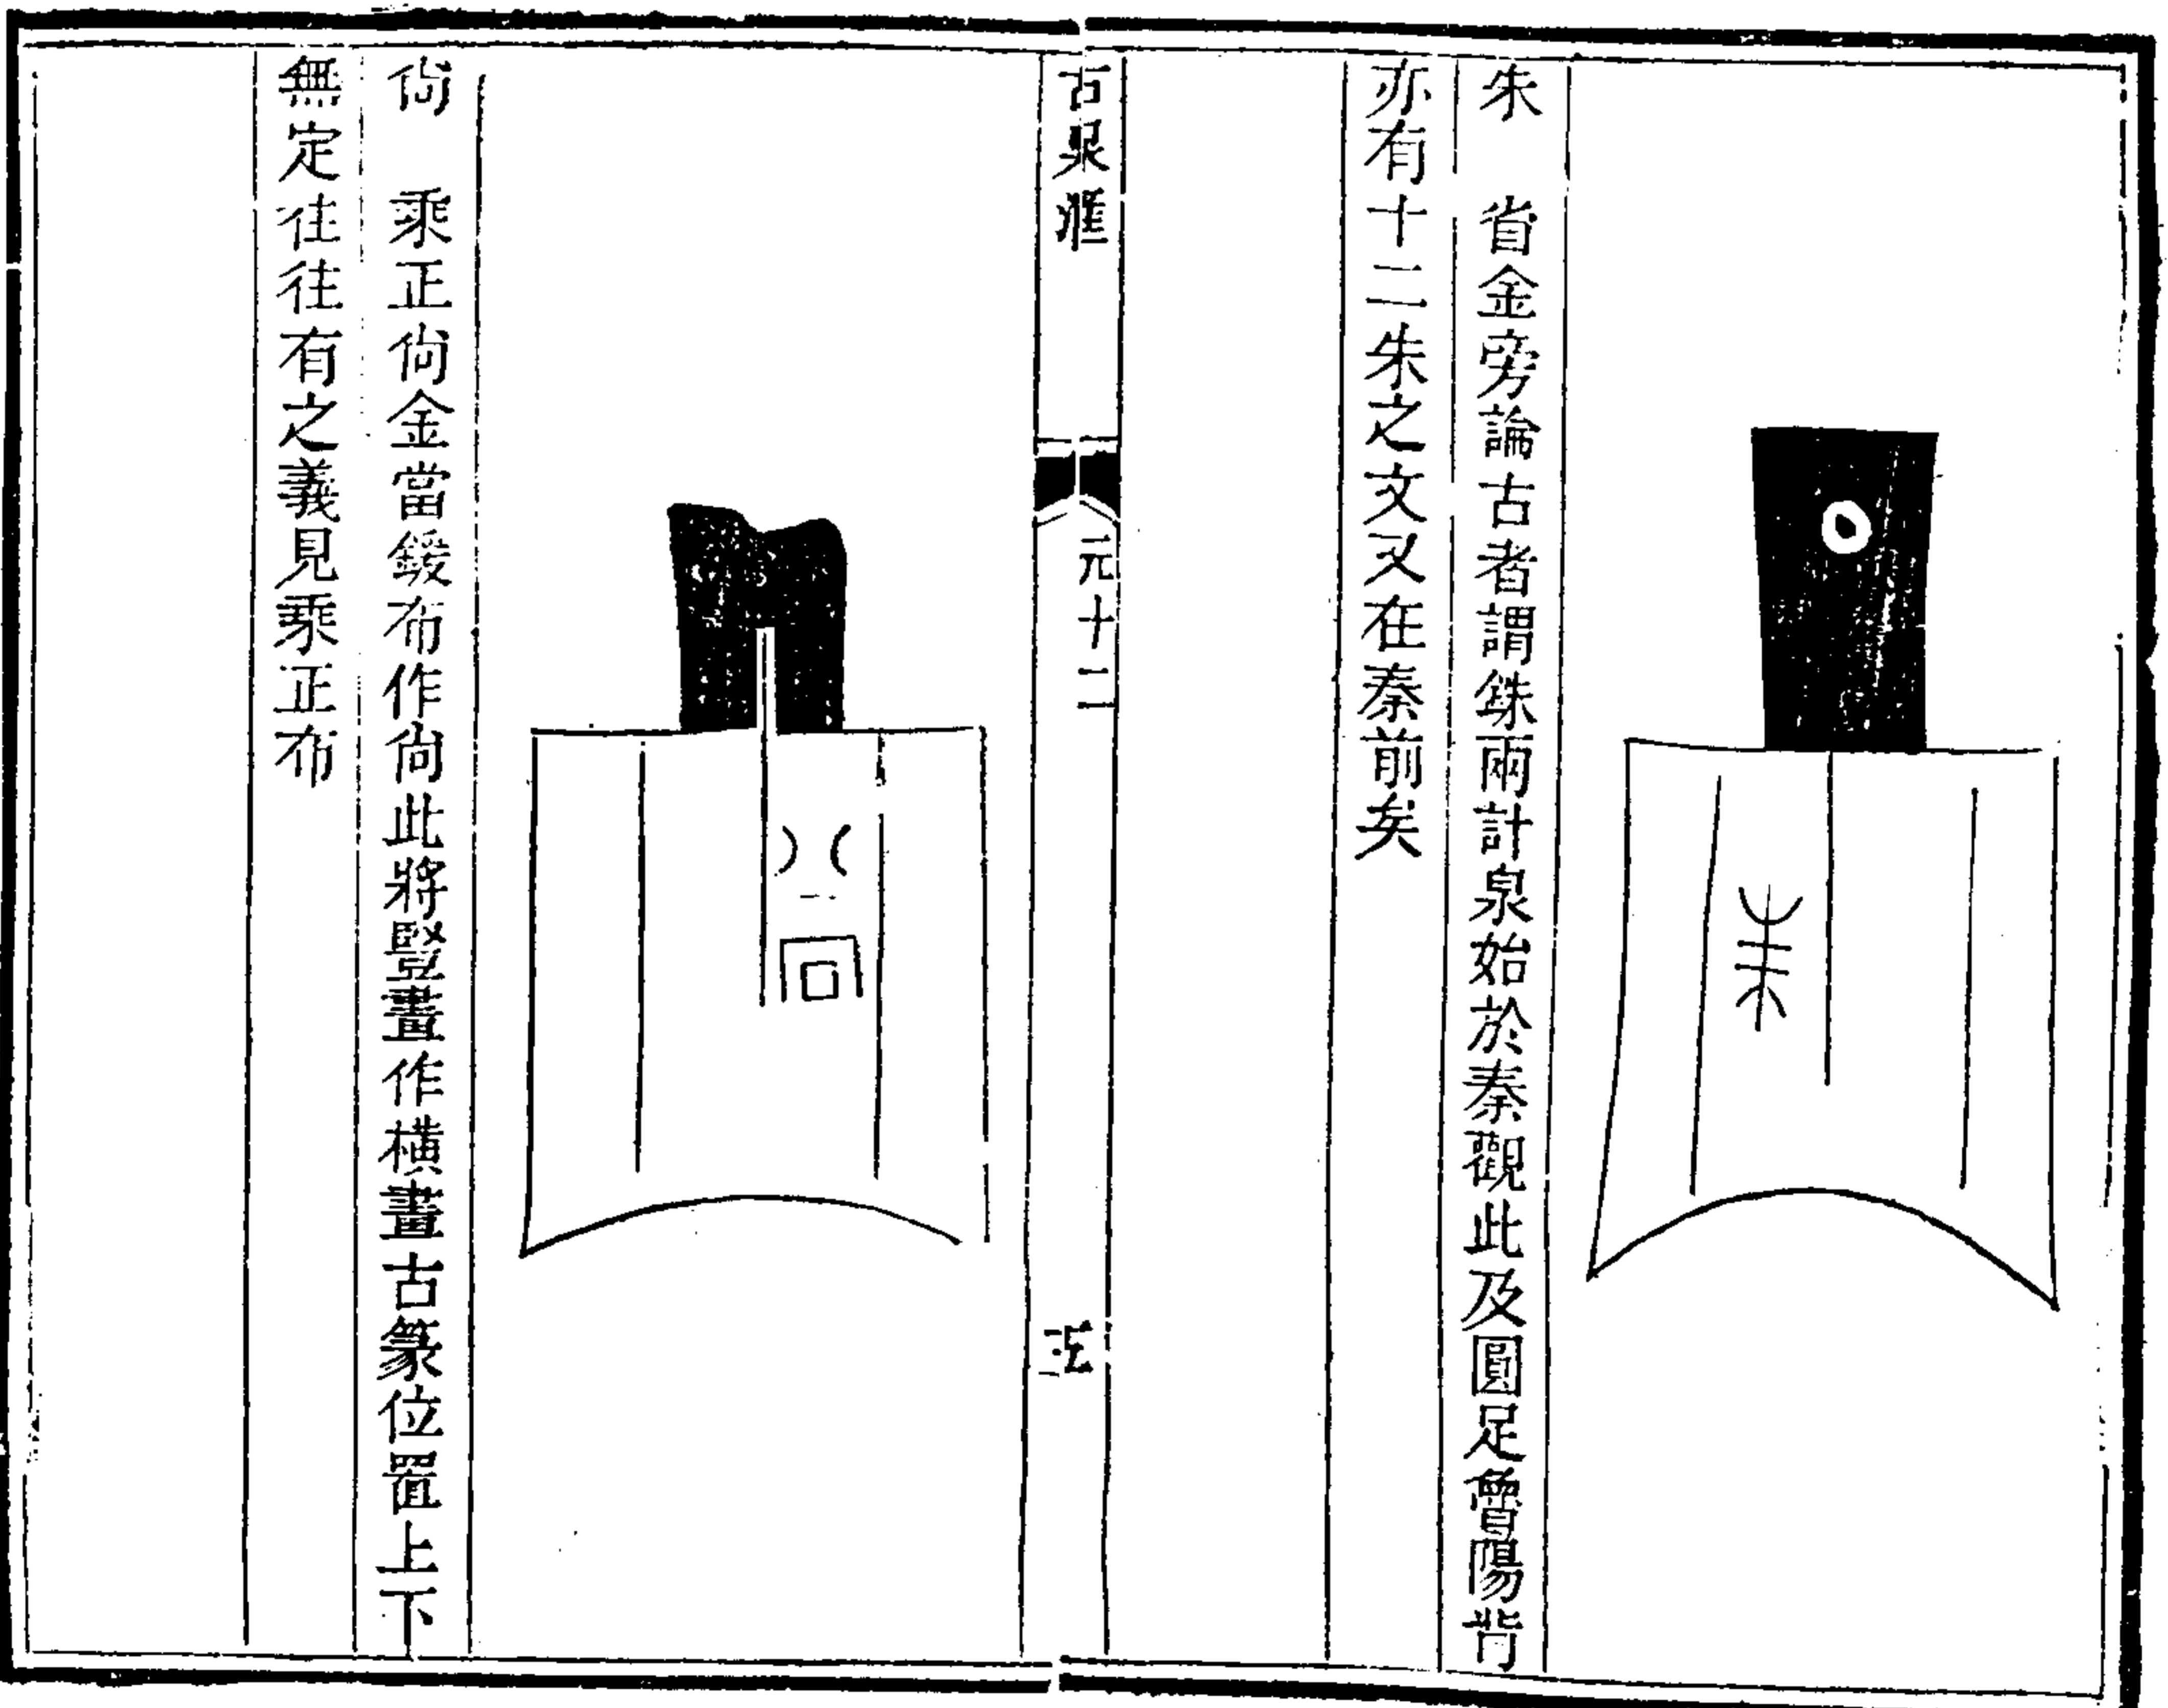 朱　省金旁論古者謂銖兩計泉始於秦觀此及圓足䜌陽背
亦有十二朱之文又在秦前矣
古泉滙
元十二
尙　乘正尙金當鍰布作尙此將豎畫作橫畫古篆位置上下
無定往往有之義見乘正布